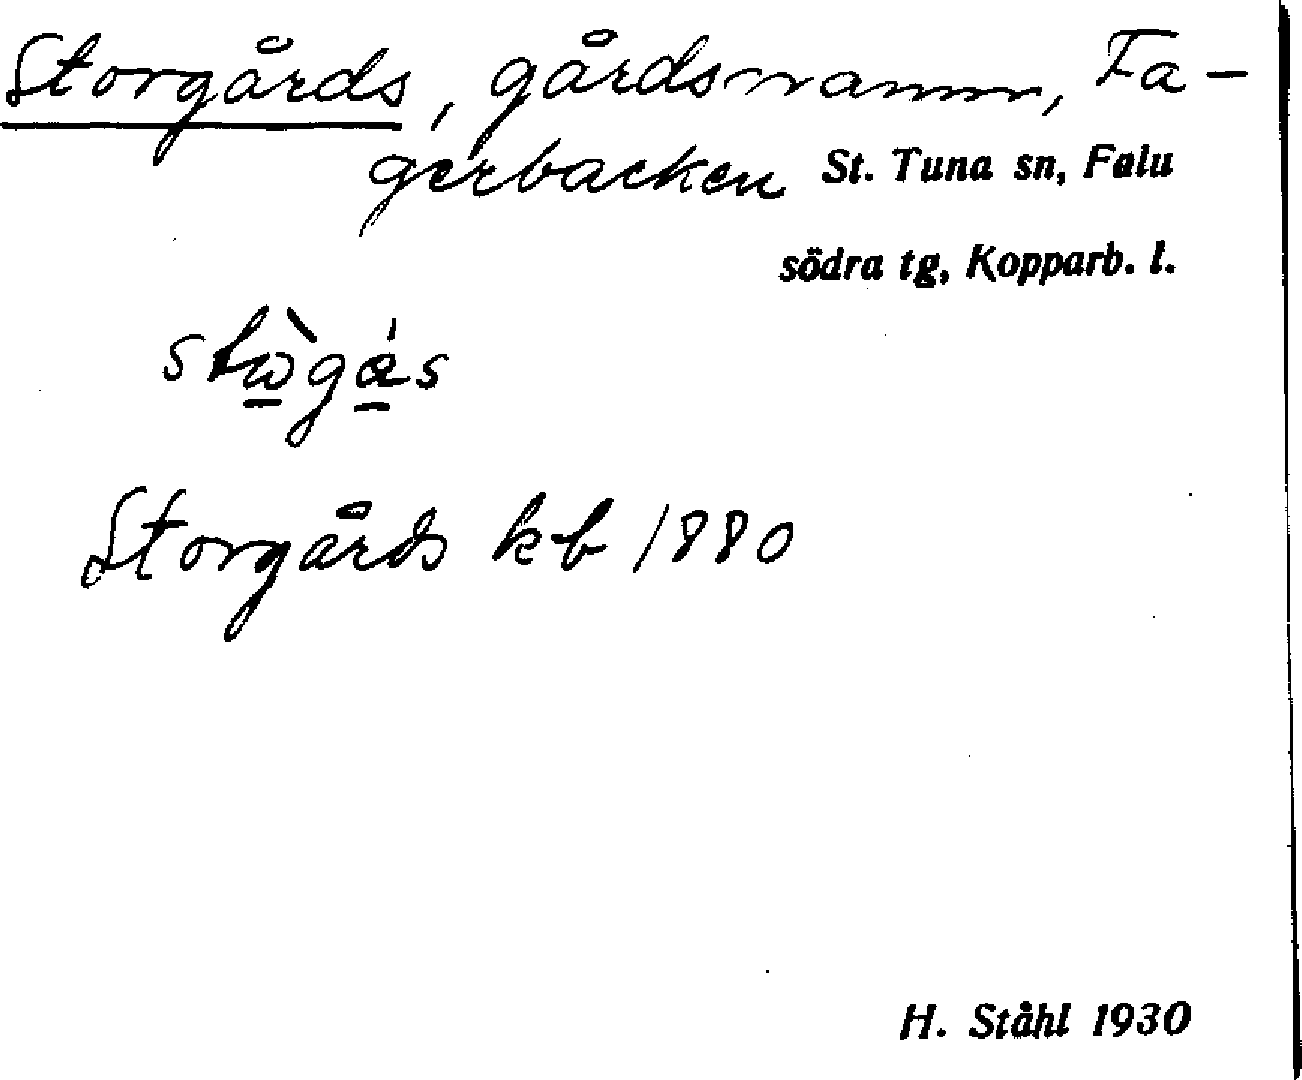 Storgårds, gårdsnamn, Fa-
gerbacken St. Tuna sn, Falu
södra tg, Kopparb. l.
Storgårds kb 1880
H. Ståhl 1930